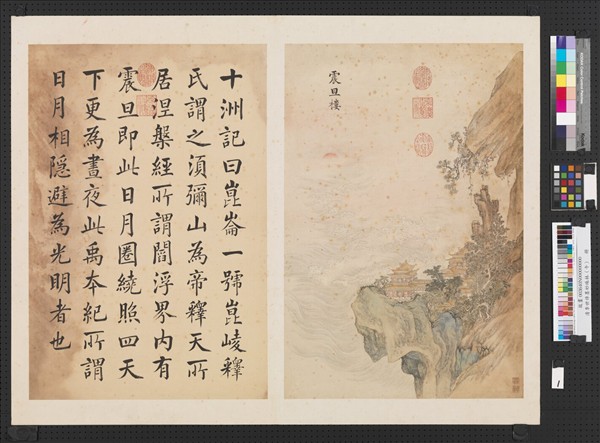 震旦樓
十洲記曰崑崙一號崑崚釋
氏謂之須彌山為帝釋天所
居涅槃經所謂閻浮界內有
震旦即此日月圈繞照四天
下更為晝夜此禹本紀所謂
日月相隱避為光明者也